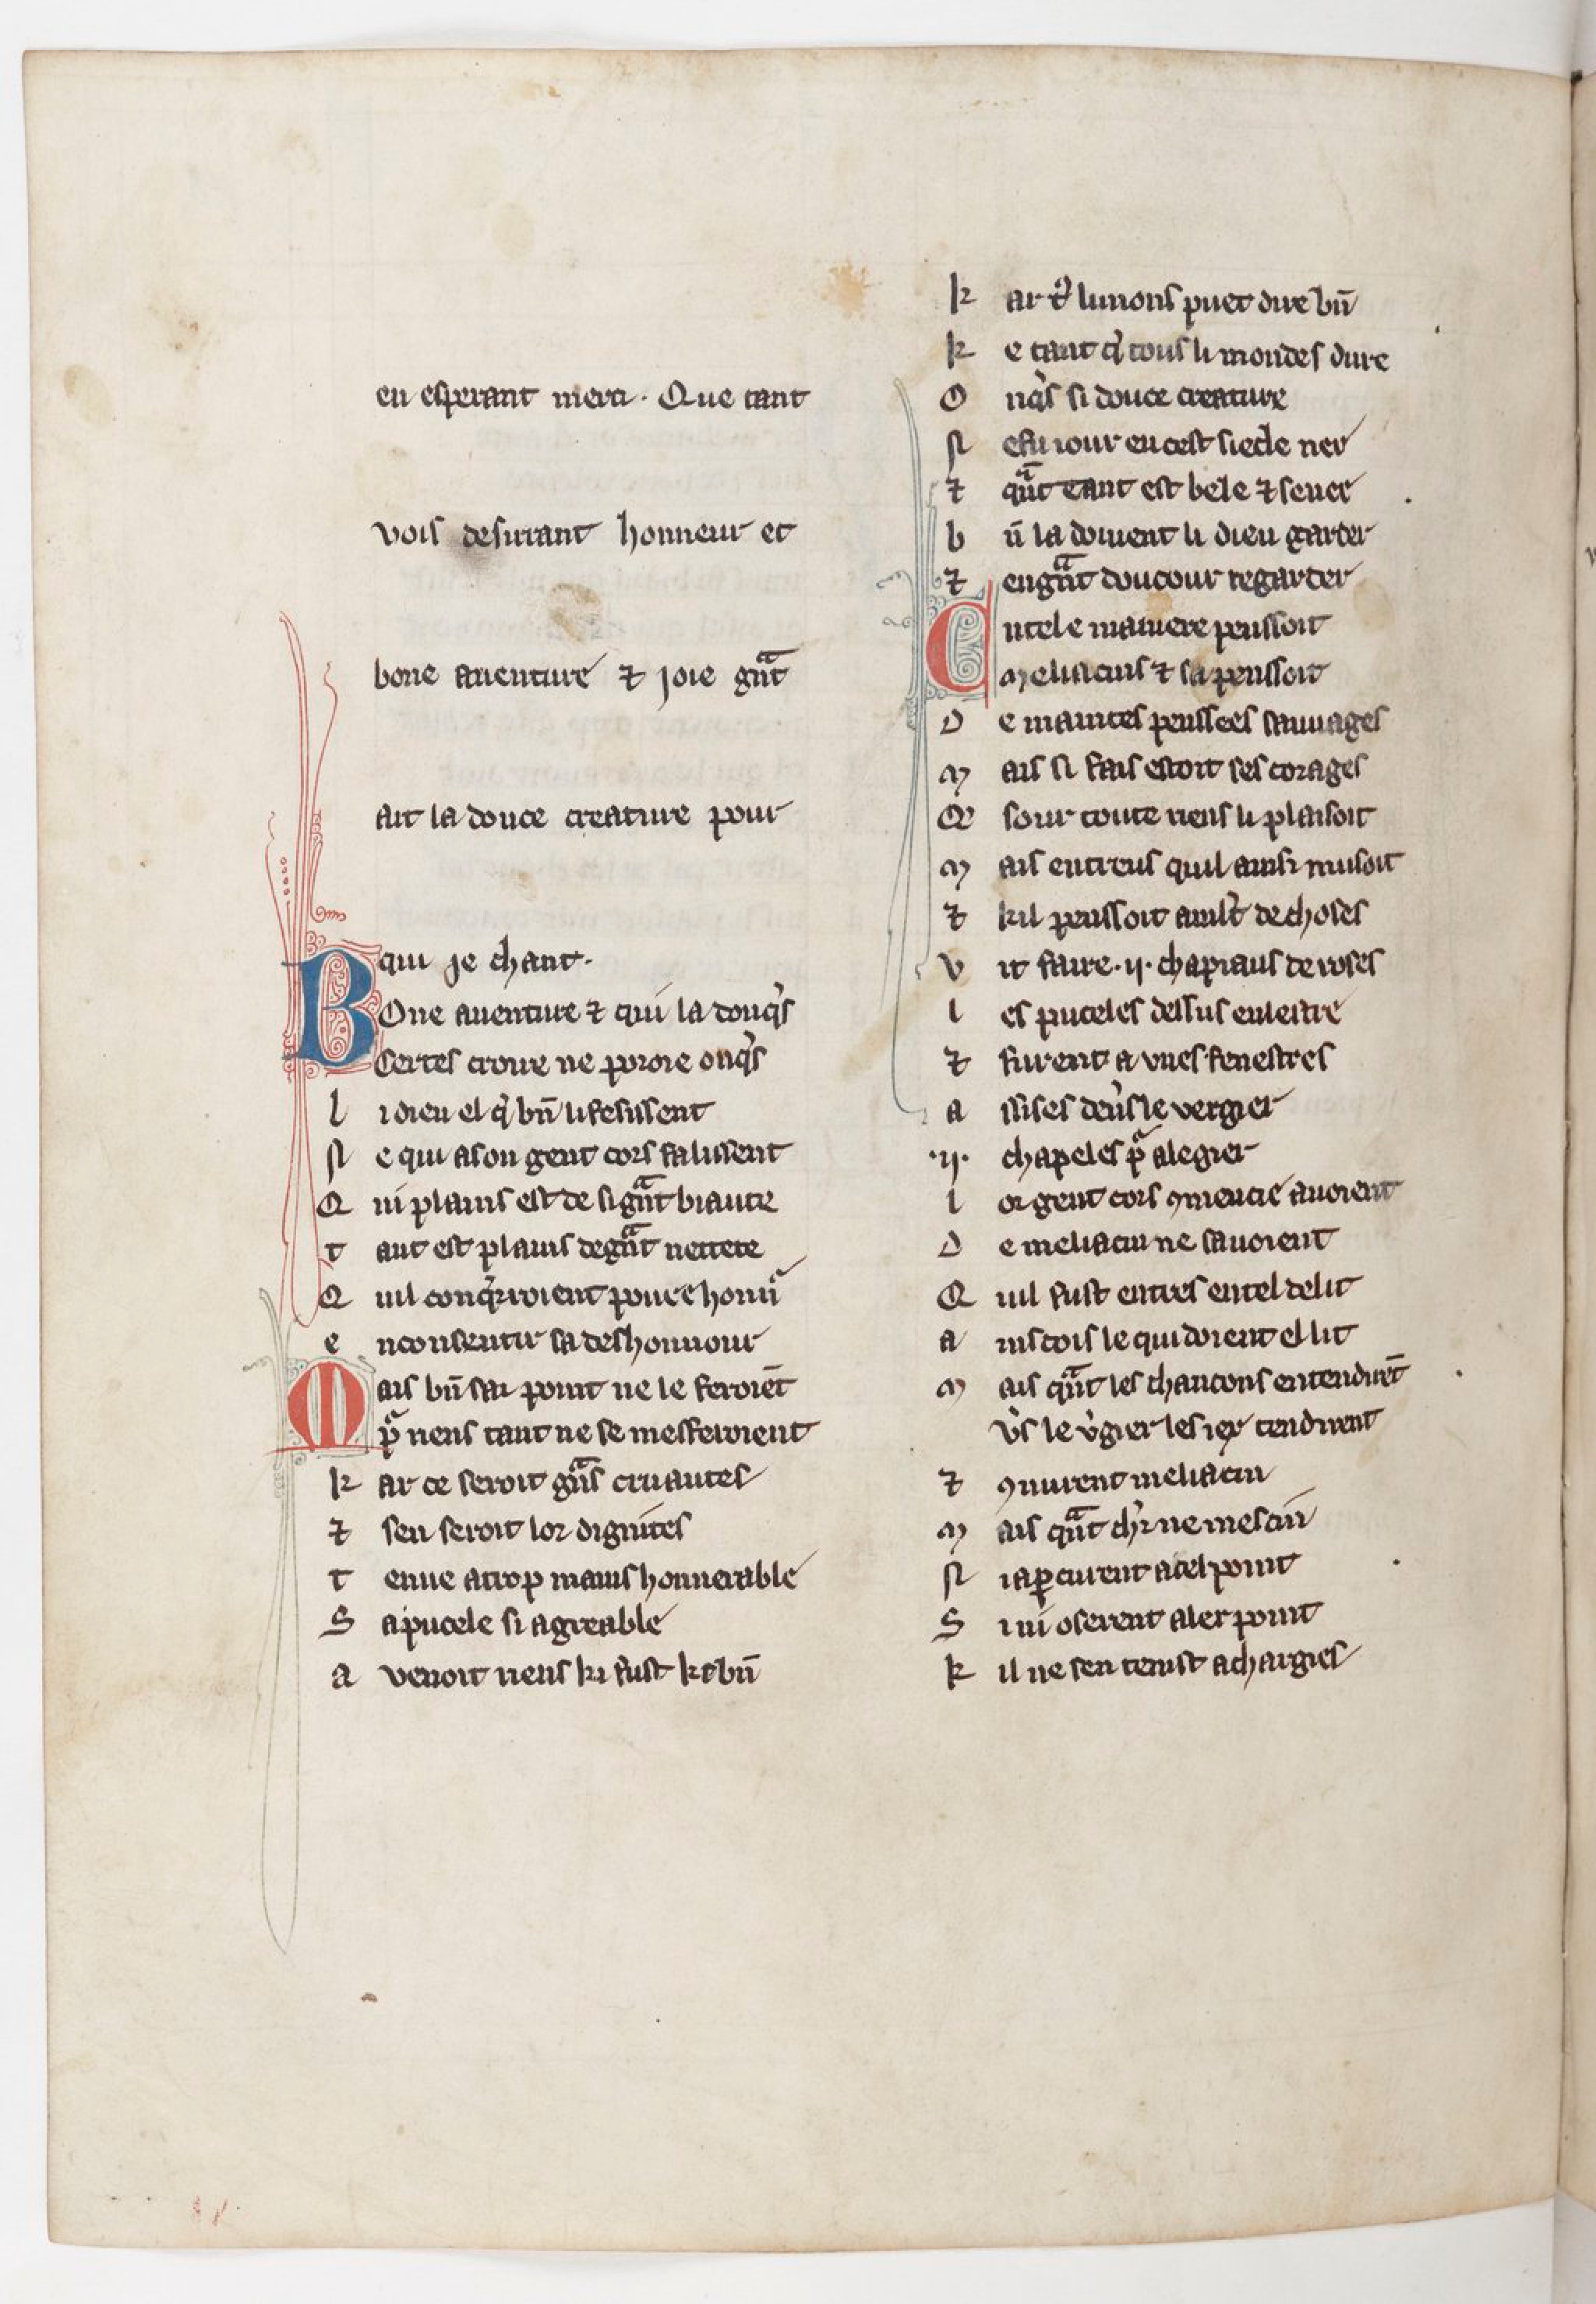 en esperant merci. Que tant
vois desirrant honneur et
bone auenture ⁊ joie gnͣt
ait la douce creature pour
qui je chant.
BOne auenture ⁊ qui la donq̾s
Certes croire ne poroie onq̾s
l i dieu el q̾ bn̄ li fesissent
N e qui a son gent cors falissent
Q ui plains est de si gnͣt biaute
t ant est plains de gnͣt nettete
Q uil conq̾rroient pour
e nconsentir sa deshonnour
Mais bn̄ sai point ne le feroiēt
pͬ riens tant ne se mesferoient
k ar ce seroit gnͣs cruautes
⁊ sen seroit lor dignites
t enue a trop mains honnerable
S a pucele si agreable
a venoit riens ki fust ke bn̄
k ar puet dire bn̄
k e tant q̾ tous li mondes dure
O nq̾s si douce creature
N e fu iour en cest siecle nee
⁊ qnͣt tant est bele ⁊ senee
b n̄ la doiuent li dieu garder
⁊ en gnͣt doucour regarder
En tele maniere penssoit
Meliacins ⁊ sa penssoit
D e maintes penssees sauuages
M ais si fais estoit ses corages
Q e sour toute riens li plaisoit
M ais entreus quil ainsi musoit
⁊ kil penssoit a mlt̾ de choses
v it faire .ij. chapiaus de roses
l es puceles dessus en lestre
⁊ furent a vnes fenestres
a ssises deu̾s le vergier
.ij. chapeles pͬ alegier
l or gent cors ꝯmencie auoient
D e meliacin ne sauoient
Q uil fust entres en tel delit
a insçois le quidoient el lit
M ais qnͣt les chancons entendirēt
v̾s le v̾gier les iex tendirent
⁊ ꝯnurent meliacin
M ais qnͣt ne mescin
N i aꝑcurent a cel point
S i ni oserent aler point
k il ne sen tenist a chargies